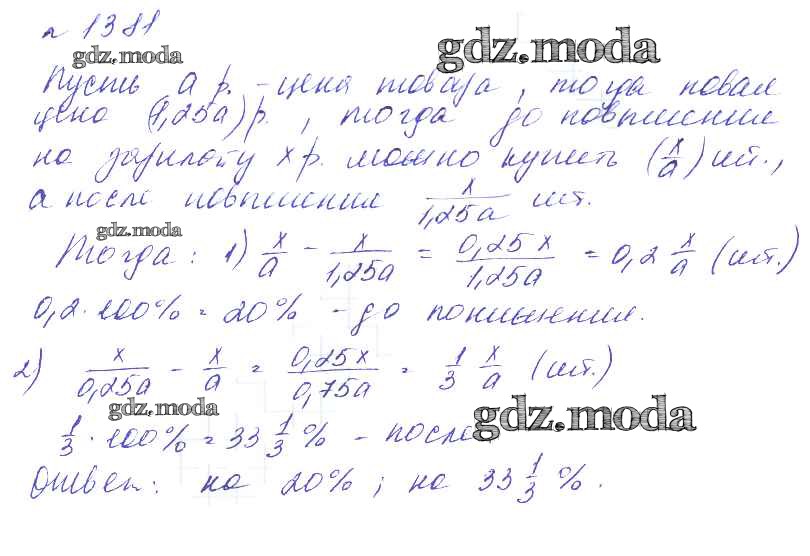 № 1381
gdz.moda
gdz.moda
Пусть a р. - цена товара, тогда новая
цена (1,25a) р., тогда до повышения
на зарплату x р. можно купить (x/a) шт.,
а после повышения x/1,25a шт.
gdz.moda
Тогда: 1) x/a - x/1,25a = 0,25x/1,25a = 0,2 x/a (шт.)
0,2 · 100% = 20% - до понижения.
2) x/0,25a - x/a = 0,25x/0,75a = 1/3 x/a (шт.)
gdz.moda
gdz.moda
1/3 · 100% = 33 1/3 % - после
Ответ: на 20%; на 33 1/3 %.